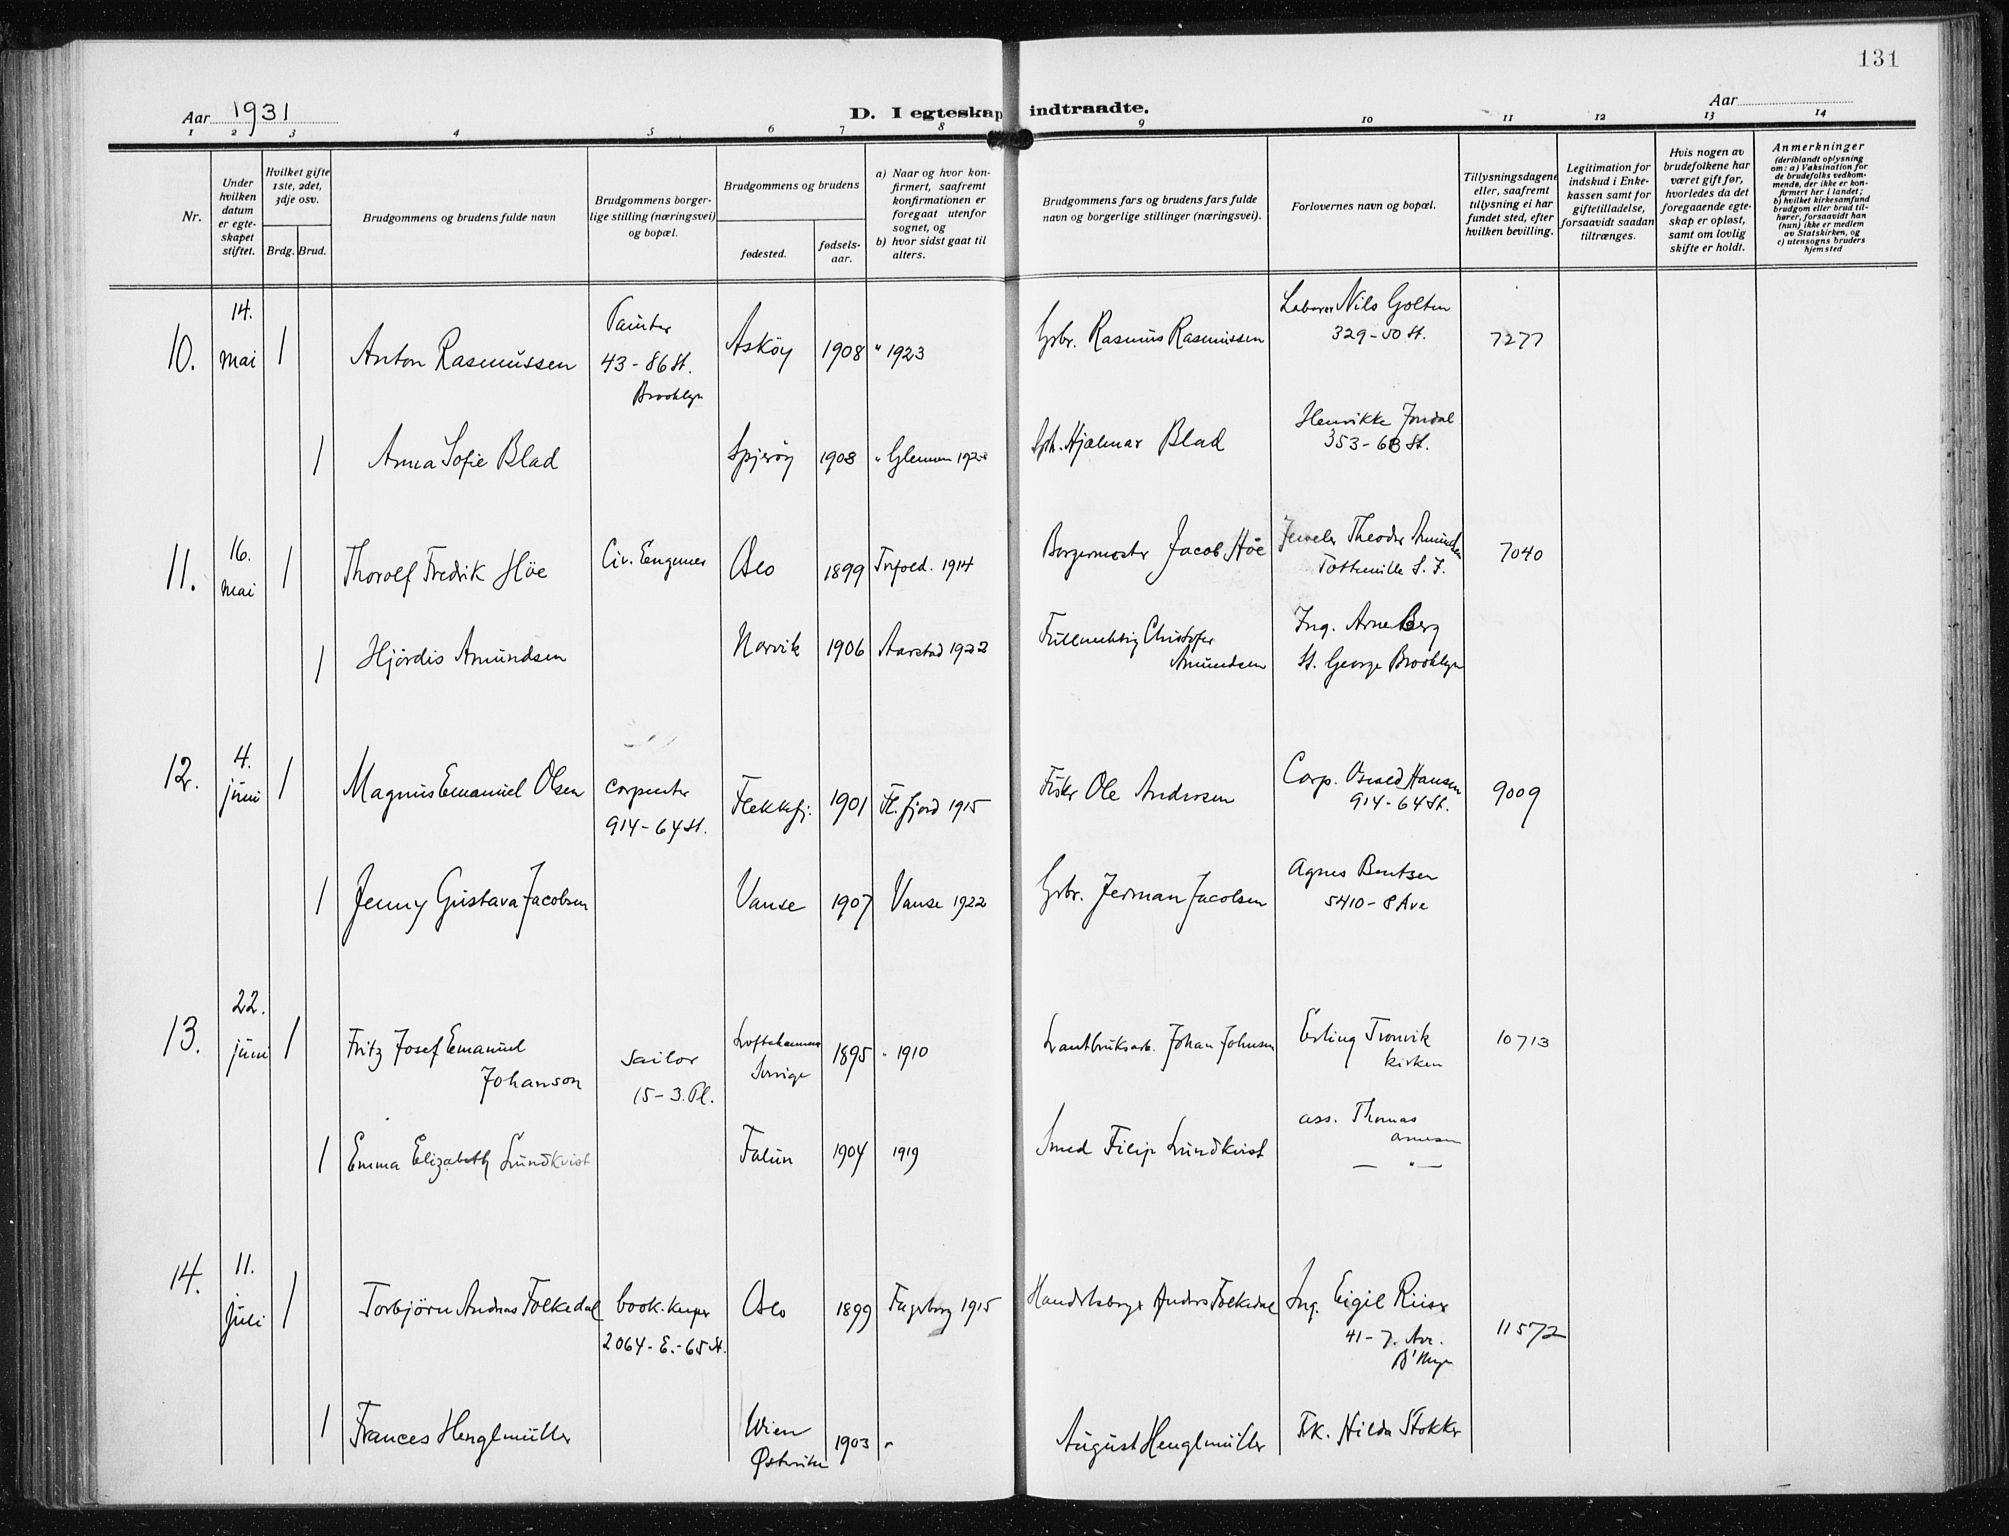 131
Aar 1931
D. I egteskap indtraadte.
Aar
1 2 3 4 5 6 7 8 9 10 11 12 13 14
Nr.
Under hvilken datum er egteskapet stiftet.
Hvilket gifte 1ste, 2det, 3dje osv.
Brdg. Brud.
Brudgommens og brudens fulde navn
Brudgommens borgerlige stilling (næringsvei) og bopæl.
Brudgommens og brudens
fødested.
fødselsaar.
a) Naar og hvor konfirmert, saafremt konfirmationen er foregaat utenfor sognet, og
b) hvor sidst gaat til alters.
Brudgommens fars og brudens fars fulde navn og borgerlige stillinger (næringsvei).
Forlovernes navn og bopæl.
Tillysningsdagene eller, saafremt tillysning ei har fundet sted, efter hvilken bevilling.
Legitimation for indskud i Enkekassen samt for giftetilladelse, forsaavidt saadan tiltrænges.
Hvis nogen av brudefolkene har været gift før, hvorledes da det foregaaende egteskap er opløst, samt om lovlig skifte er holdt.
Anmerkninger
(deriblandt oplysning om: a) Vaksination for de brudefolks vedkommende, der ikke er konfirmert her i landet; b) hvilket kirkesamfund brudgom eller brud tilhører, forsaavidt han (hun) ikke er medlem av Statskirken, og c) utensogns bruders hjemsted
10. 14. mai 1 Anton Rasmussen
Painter
43 - 86 St.
Brooklyn
Askøy 1908 " 1923
Gbr. Rasmus Rasmussen
Laborer Nils Golten
329 - 50 St.
7277
1 Anna Sofie Blad
Spjerøy 1908 " Glemmen
Hjalmar Blad
Henrikke Jondal
353 - 63 St.
11. 16. mai 1 Thorolf Fredrik Höe
Civ. Engineer
Oslo 1899 Trefold. 1914
Borgermester Jacob Höe
Jeweler Theodor Amundsen
Tottenville S. I.
7040
1 Hjördis Amundsen
Narvik 1906 Aarstad 1922
Fullmektig Christofer
Amundsen
Ing. Arne Berg
St. George Brooklyn
12. 4. juni 1 Magnus Emanuel Olsen
Carpenter
914 - 64 St.
Flekkefj. 1901 Fl. fjord 1915
Fisker Ole Andersen
Carp. Osvald Hansen
914 - 64 St.
9009
1 Jenny Gustava Jacobsen
Vanse 1907 Vanse 1922
Gbr. Jerman Jacobsen
Agnes Bentsen
5410 - 8 Ave
13. 22. juni 1 Fritz Josef Emanuel
Johanson
Sailor
15 - 3. Pl.
Loftahammar
Sverige
1895 " 1910
Lantbruksarb. Johan Johnson
Erling Tronvik
kirken
10713
1 Emma Elizabeth Lundkvist
Falun 1904 1919
Smed Filip Lundkvist
ass. Thomas
Arnesen
— " —
14. 11. Juli 1 Torbjörn Andreas Folkedal
book-keeper
2064 - E. - 65 St.
Oslo 1899 Fagerborg 1915
Handelsborger Anders Folkedal
Ing. Eigil Riiser
41 - 7. Ave.
B'klyn
11572
1 Frances Henglmüller
Wien
Østerrike
1903 "
August Henglmüller
Frk. Hilda Stokke